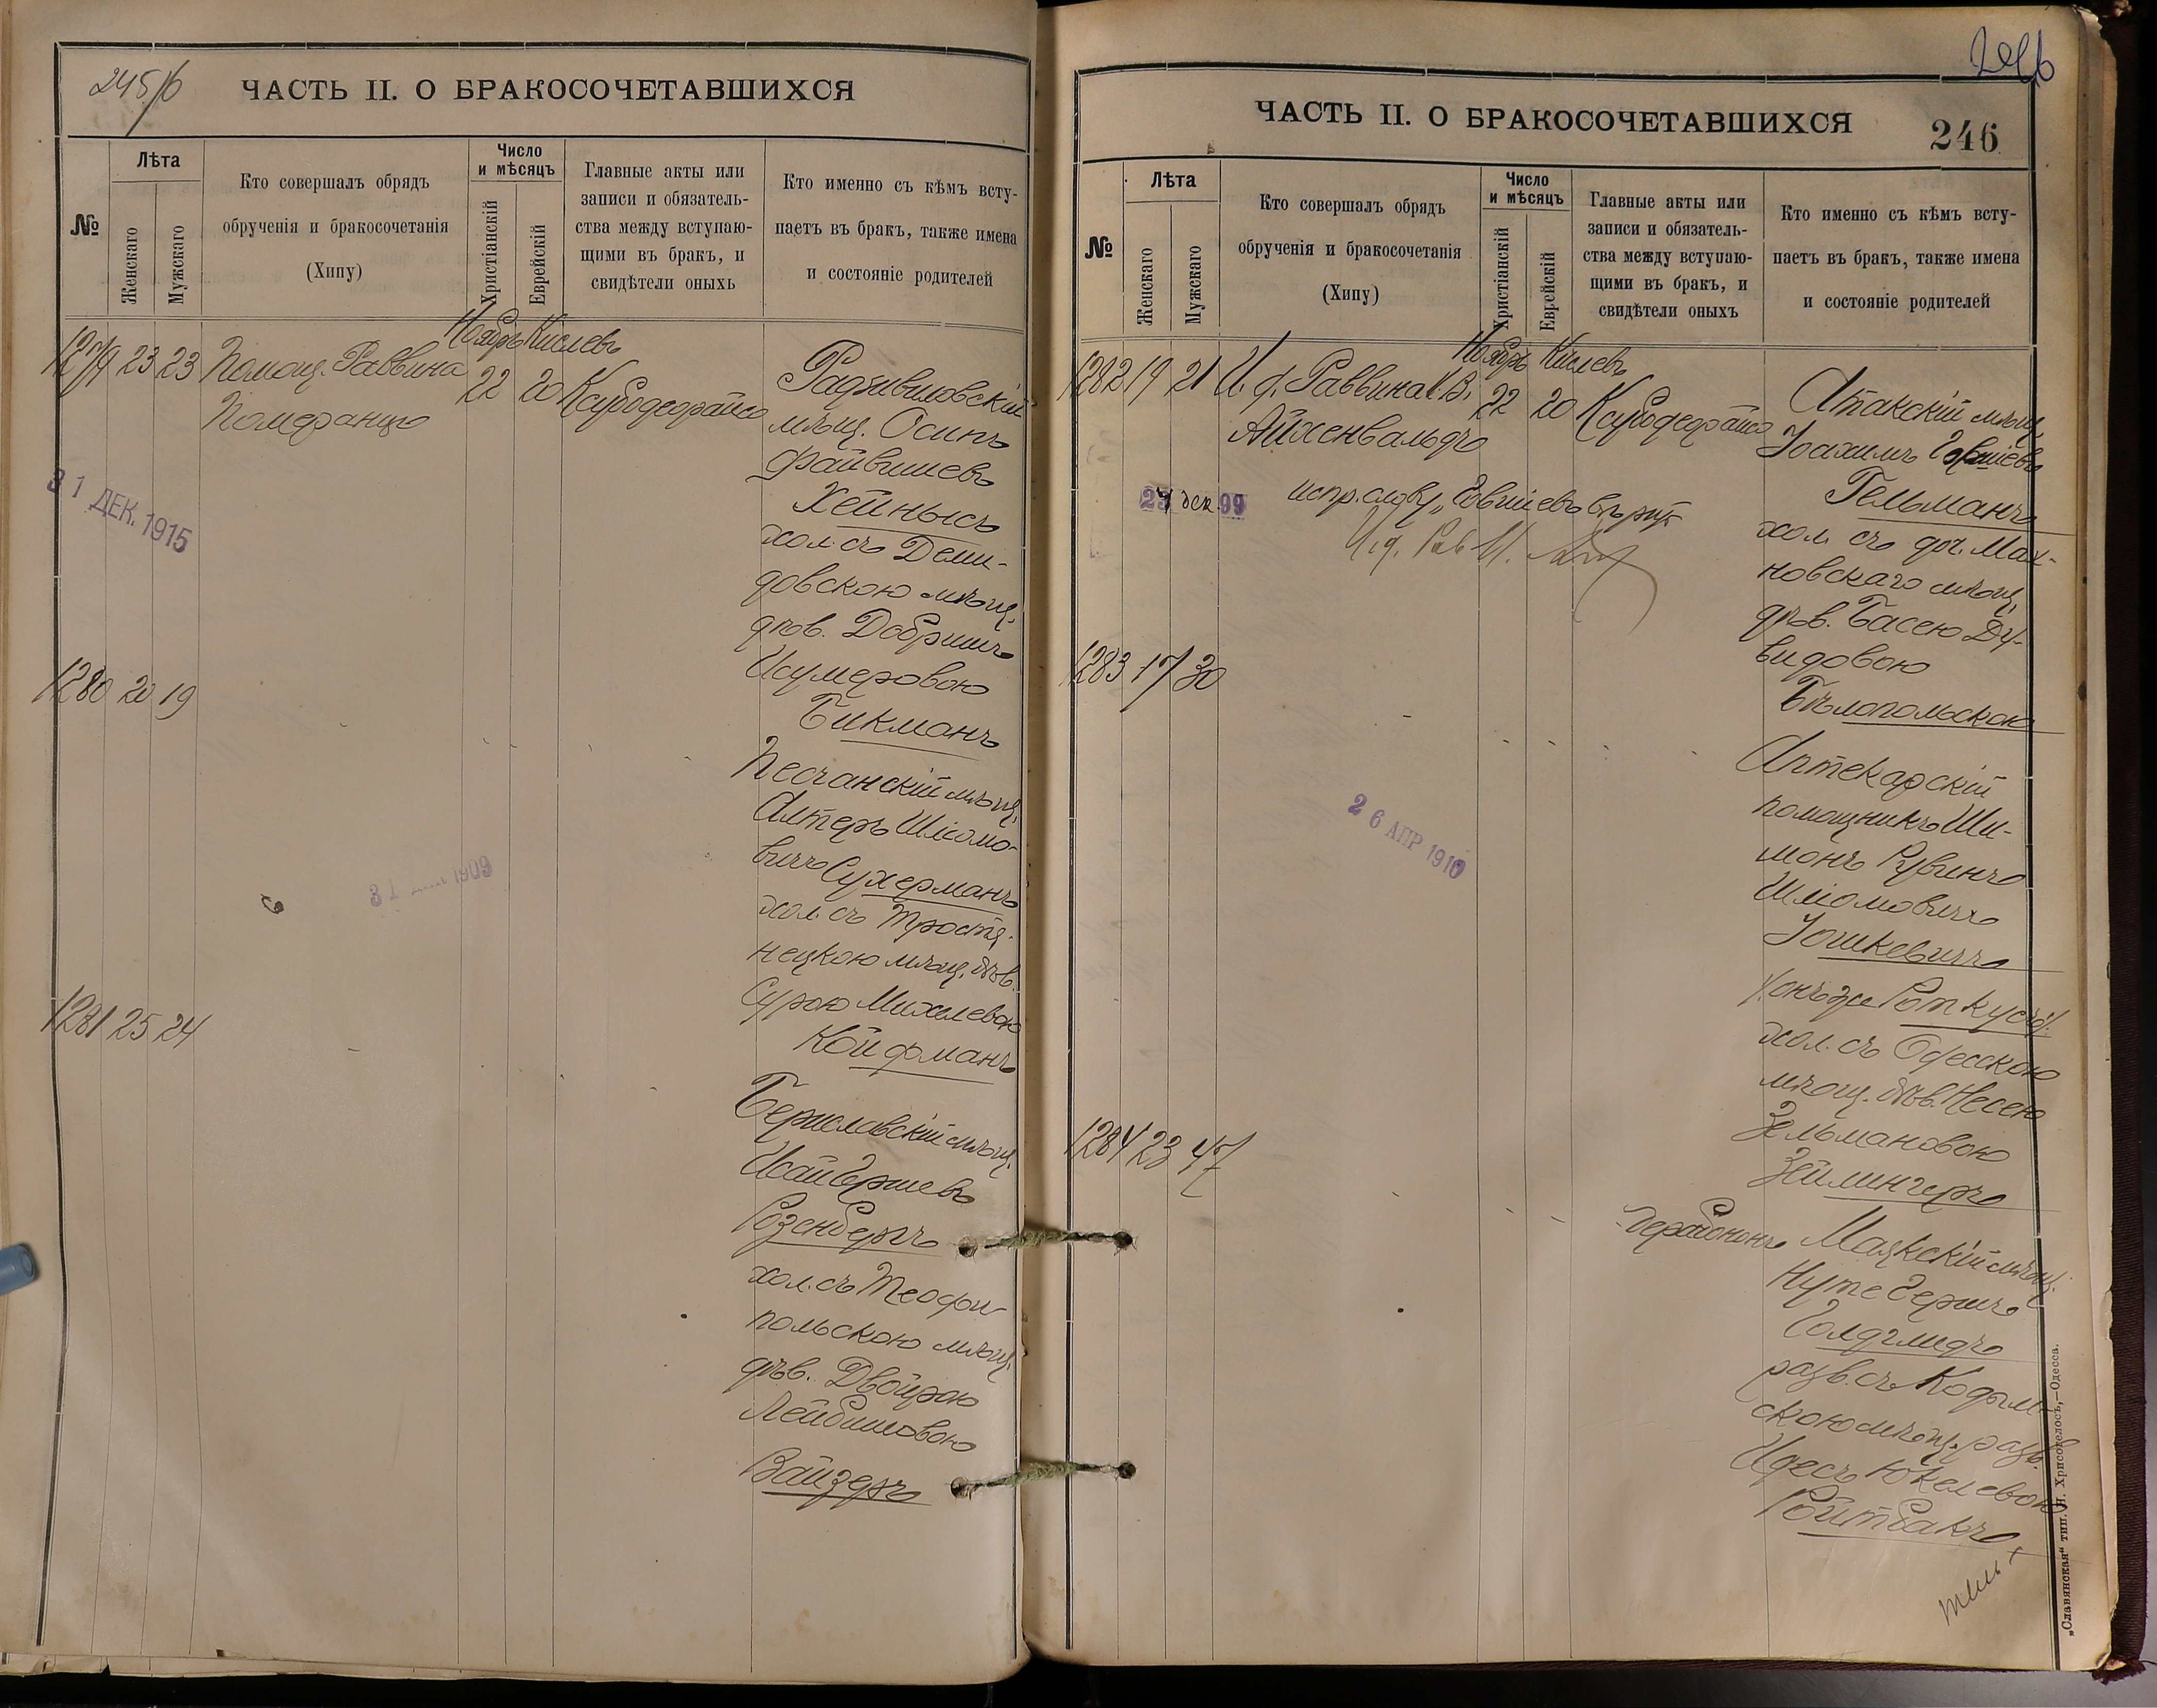 245/б
ЧАСТЬ II. О БРАКОСОЧЕТАВШИХСЯ
№
Лѣта
Женскаго
Мужскаго
Кто совершалъ обрядъ
обрученія и бракосочетанія
(Хипу)
Число
и мѣсяцъ
Христіанскій
Еврейскій
Главные акты или
записи и обязатель-
ства между вступаю-
щими въ бракъ, и
свидѣтели оныхъ
Кто именно съ кѣмъ всту-
паетъ въ бракъ, также имена
и состояніе родителей
1279 23 23 Помощ. Раввина
Померанцъ
Ноябрь Кислевъ
22 20
Радзивиловскій
мѣщ. Осипъ
Файвишевъ
Хейнысъ
хол. съ Деми-
довскою мѣщ.
дѣв. Добришъ
Исумеровою
Бикманъ
31 ДЕК. 1915
1280 20 19
Песчанскій мѣщ.
Алтеръ Шлiомо-
вичъ Сухерманъ
хол. съ Тростя-
нецкою мѣщ. дѣв.
Сурою Михелевою
Койфманъ
31 1909
1281 25 24
Бериславскій мѣщ.
Исай Гершевъ
Розенбергъ
хол. съ Теофи-
польскою мѣщ.
дѣв. Двойрою
Лейбишовою
Вайзеръ
246
ЧАСТЬ II. О БРАКОСОЧЕТАВШИХСЯ
246
№
Лѣта
Женскаго
Мужскаго
Кто совершалъ обрядъ
обрученія и бракосочетанія
(Хипу)
Число
и мѣсяцъ
Христіанскій
Еврейскій
Главные акты или
записи и обязатель-
ства между вступаю-
щими въ бракъ, и
свидѣтели оныхъ
Кто именно съ кѣмъ всту-
паетъ въ бракъ, также имена
и состояніе родителей
1282 19 21 И. д. Раввина К. В.
Айхенвальдъ
Ноябрь Кислевъ
22 20
Атакскій мѣщ.
Іоахимъ
Гельманъ
хол. съ дч. Мах-
новскаго мѣщ.
дѣв. Басею Ду-
видовою
Бѣлопольскою
дек. 99
испр. слову
1283 17 30
Аптекарскій
помощникъ Ши-
монъ Рувинъ
Шліомовичъ
Іошкевичъ
/онъ же Роткусъ/
хол. съ Одесскою
мѣщ. дѣв. Несею
Зельмановою
Зейлингеръ
26 АПР 1910
1284 23 47
Маякскій мѣщ.
Нуте Гершъ
Голдглидъ
разв. съ Кодым-
скою мѣщ. разв.
Идесъ Юкелевою
Ройтбакъ
„Славянская“ тип. Н. Хрисогелосъ,—Одесса.